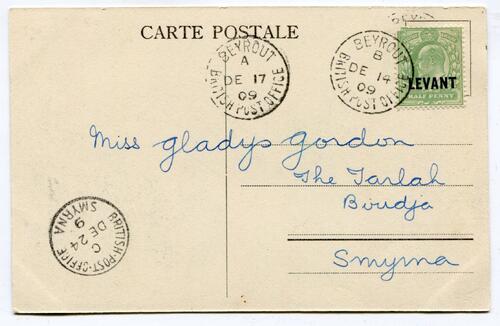 CARTE POSTALE
BEYROUT
A
DE 17
09
BRITISH POST OFFICE
BEYROUT
B
DE 14
09
BRITISH POST OFFICE
LEVANT
HALF PENNY
Miss Gladys Gordon
The Tarlah
Boudja
Smyrna
BRITISH-POST-OFFICE
C
DE 24
9
SMYRNA